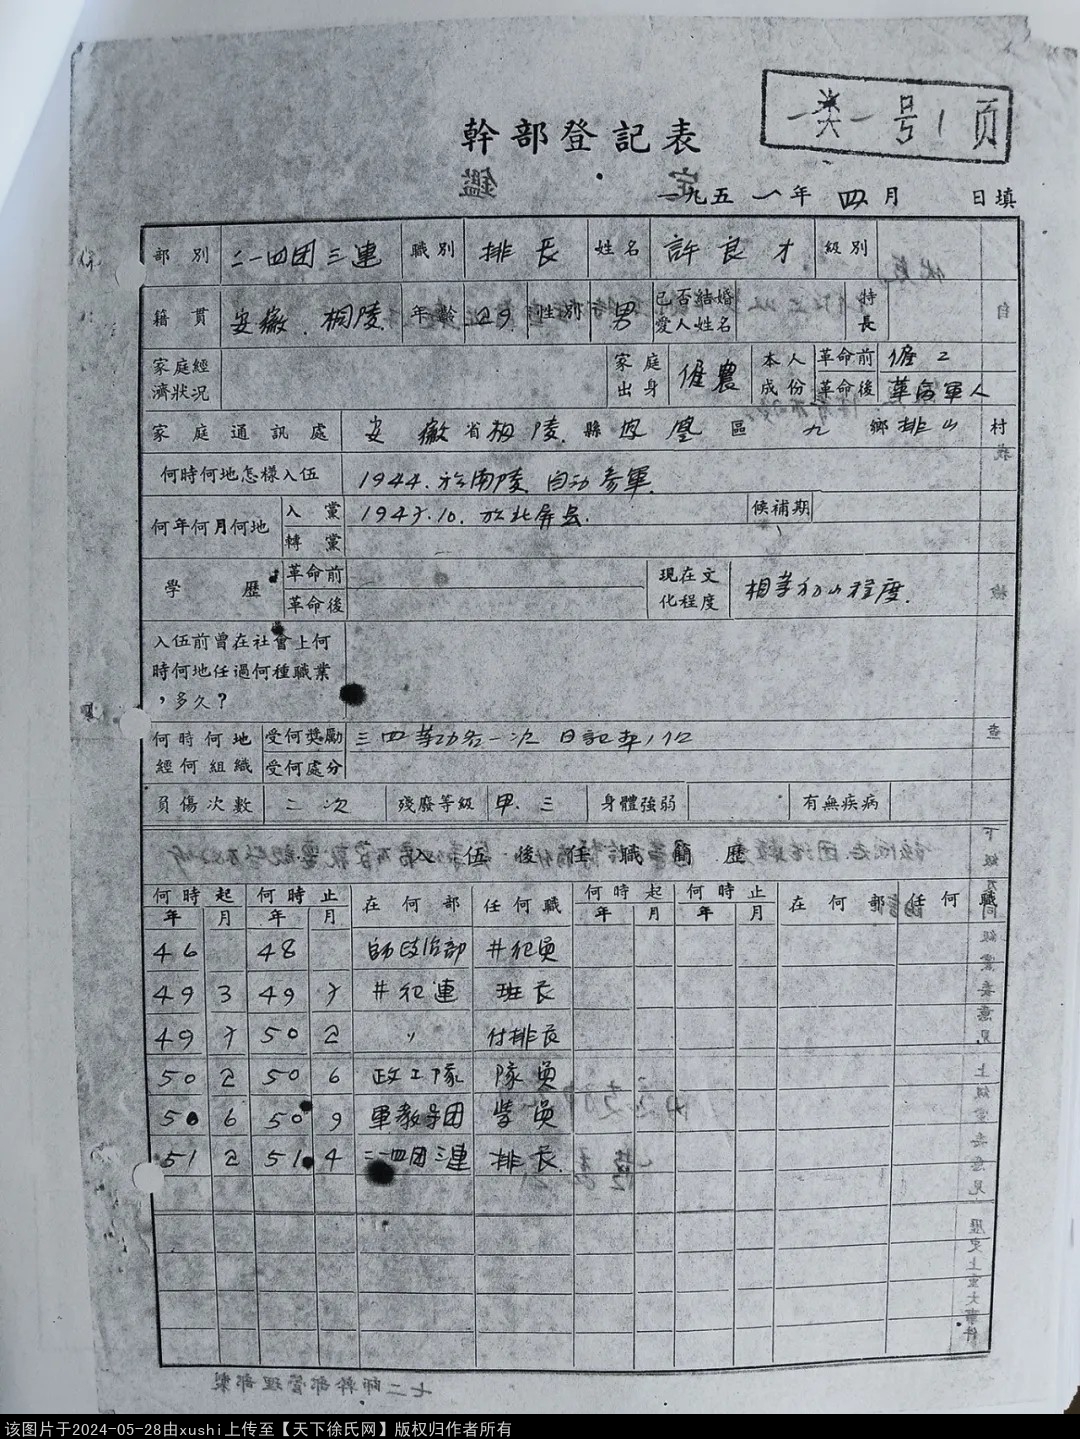 一类一号1页
幹部登記表
一九五一年四月 日填
部別 二一四团三連 職別 排长 姓名 許良才 級別
籍貫 安徽.桐陵. 年齡 29 性別 男 已否結婚愛人姓名 特長
家庭經濟狀况 家庭出身 僱農 本人成份 革命前 僱工
革命後 革命軍人
家庭通訊處 安徽省桐陵.縣 凤凰區 九鄉排山村
何時何地怎樣入伍 1944.於南陵.自动参軍.
何年何月何地 入黨 1947.10.於北屏县. 候補期
轉黨
學歷 革命前 現在文化程度 相等初小程度.
革命後
入伍前曾在社會上何
時何地任過何種職業
，多久？
何時何地經何組織 受何獎勵 三四等功各一次
受何處分
負傷次數 二次 殘廢等級 甲.三 身體强弱 有無疾病
入伍後任職簡歷
何時起 何時止 在何部 任何職 何時起 何時止 在何部 任何職
年 月 年 月 年 月 年 月
46 48 師政治部
49 3 49 7 班长
49 7 50 2 〃 付排长
50 2 50 6 政工隊 隊員
50 6 50 9 軍教导团 學員
51 2 51 4 二一四团三連 排长.
七二師幹部管理部製
该图片于2024-05-28由xushi上传至【天下徐氏网】版权归作者所有